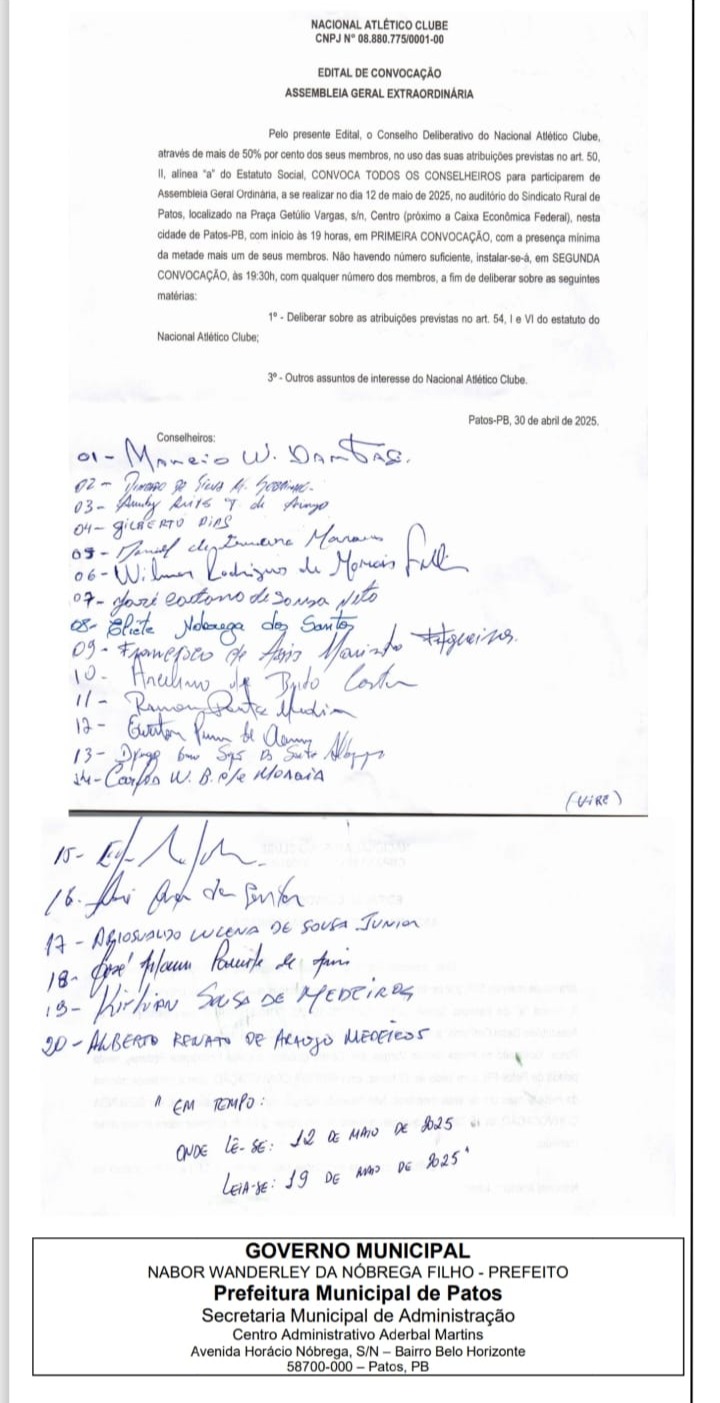 NACIONAL ATLÉTICO CLUBE
CNPJ Nº 08.880.775/0001-00
EDITAL DE CONVOCAÇÃO
ASSEMBLEIA GERAL EXTRAORDINÁRIA
Pelo presente Edital, o Conselho Deliberativo do Nacional Atlético Clube,
através de mais de 50% por cento dos seus membros, no uso das suas atribuições previstas no art. 50,
II, alínea "a" do Estatuto Social, CONVOCA TODOS OS CONSELHEIROS para participarem de
Assembleia Geral Ordinária, a se realizar no dia 12 de maio de 2025, no auditório do Sindicato Rural de
Patos, localizado na Praça Getúlio Vargas, s/n, Centro (próximo a Caixa Econômica Federal), nesta
cidade de Patos-PB, com início às 19 horas, em PRIMEIRA CONVOCAÇÃO, com a presença mínima
da metade mais um de seus membros. Não havendo número suficiente, instalar-se-á, em SEGUNDA
CONVOCAÇÃO, às 19:30h, com qualquer número dos membros, a fim de deliberar sobre as seguintes
matérias:
1º - Deliberar sobre as atribuições previstas no art. 54, I e VI do estatuto do
Nacional Atlético Clube;
3º - Outros assuntos de interesse do Nacional Atlético Clube.
Patos-PB, 30 de abril de 2025.
Conselheiros:
01- W. DANTAS.
02-
03- de Araujo
04- GILBERTO DIAS
05- Manoel de
06- Wilman Rodrigues de Morais
07- José Caetano de Sousa Neto
08- Eliete Nobrega dos Santos
09- Francisco de Assis
10- de Brito Costa
11- Ramon
12-
13-
14- Carlos W. B. de Morais
(VIRE)
15-
16.
17- AGIOSVALDO LUCENA DE SOUSA JUNIOR
18- José
19- SOUSA DE MEDEIROS
20- ALBERTO RENATO DE ARAUJO MEDEIROS
" EM TEMPO:
ONDE LÊ-SE: 12 DE MAIO DE 2025
LEIA-SE: 19 DE MAIO DE 2025"
GOVERNO MUNICIPAL
NABOR WANDERLEY DA NÓBREGA FILHO - PREFEITO
Prefeitura Municipal de Patos
Secretaria Municipal de Administração
Centro Administrativo Aderbal Martins
Avenida Horácio Nóbrega, S/N – Bairro Belo Horizonte
58700-000 – Patos, PB